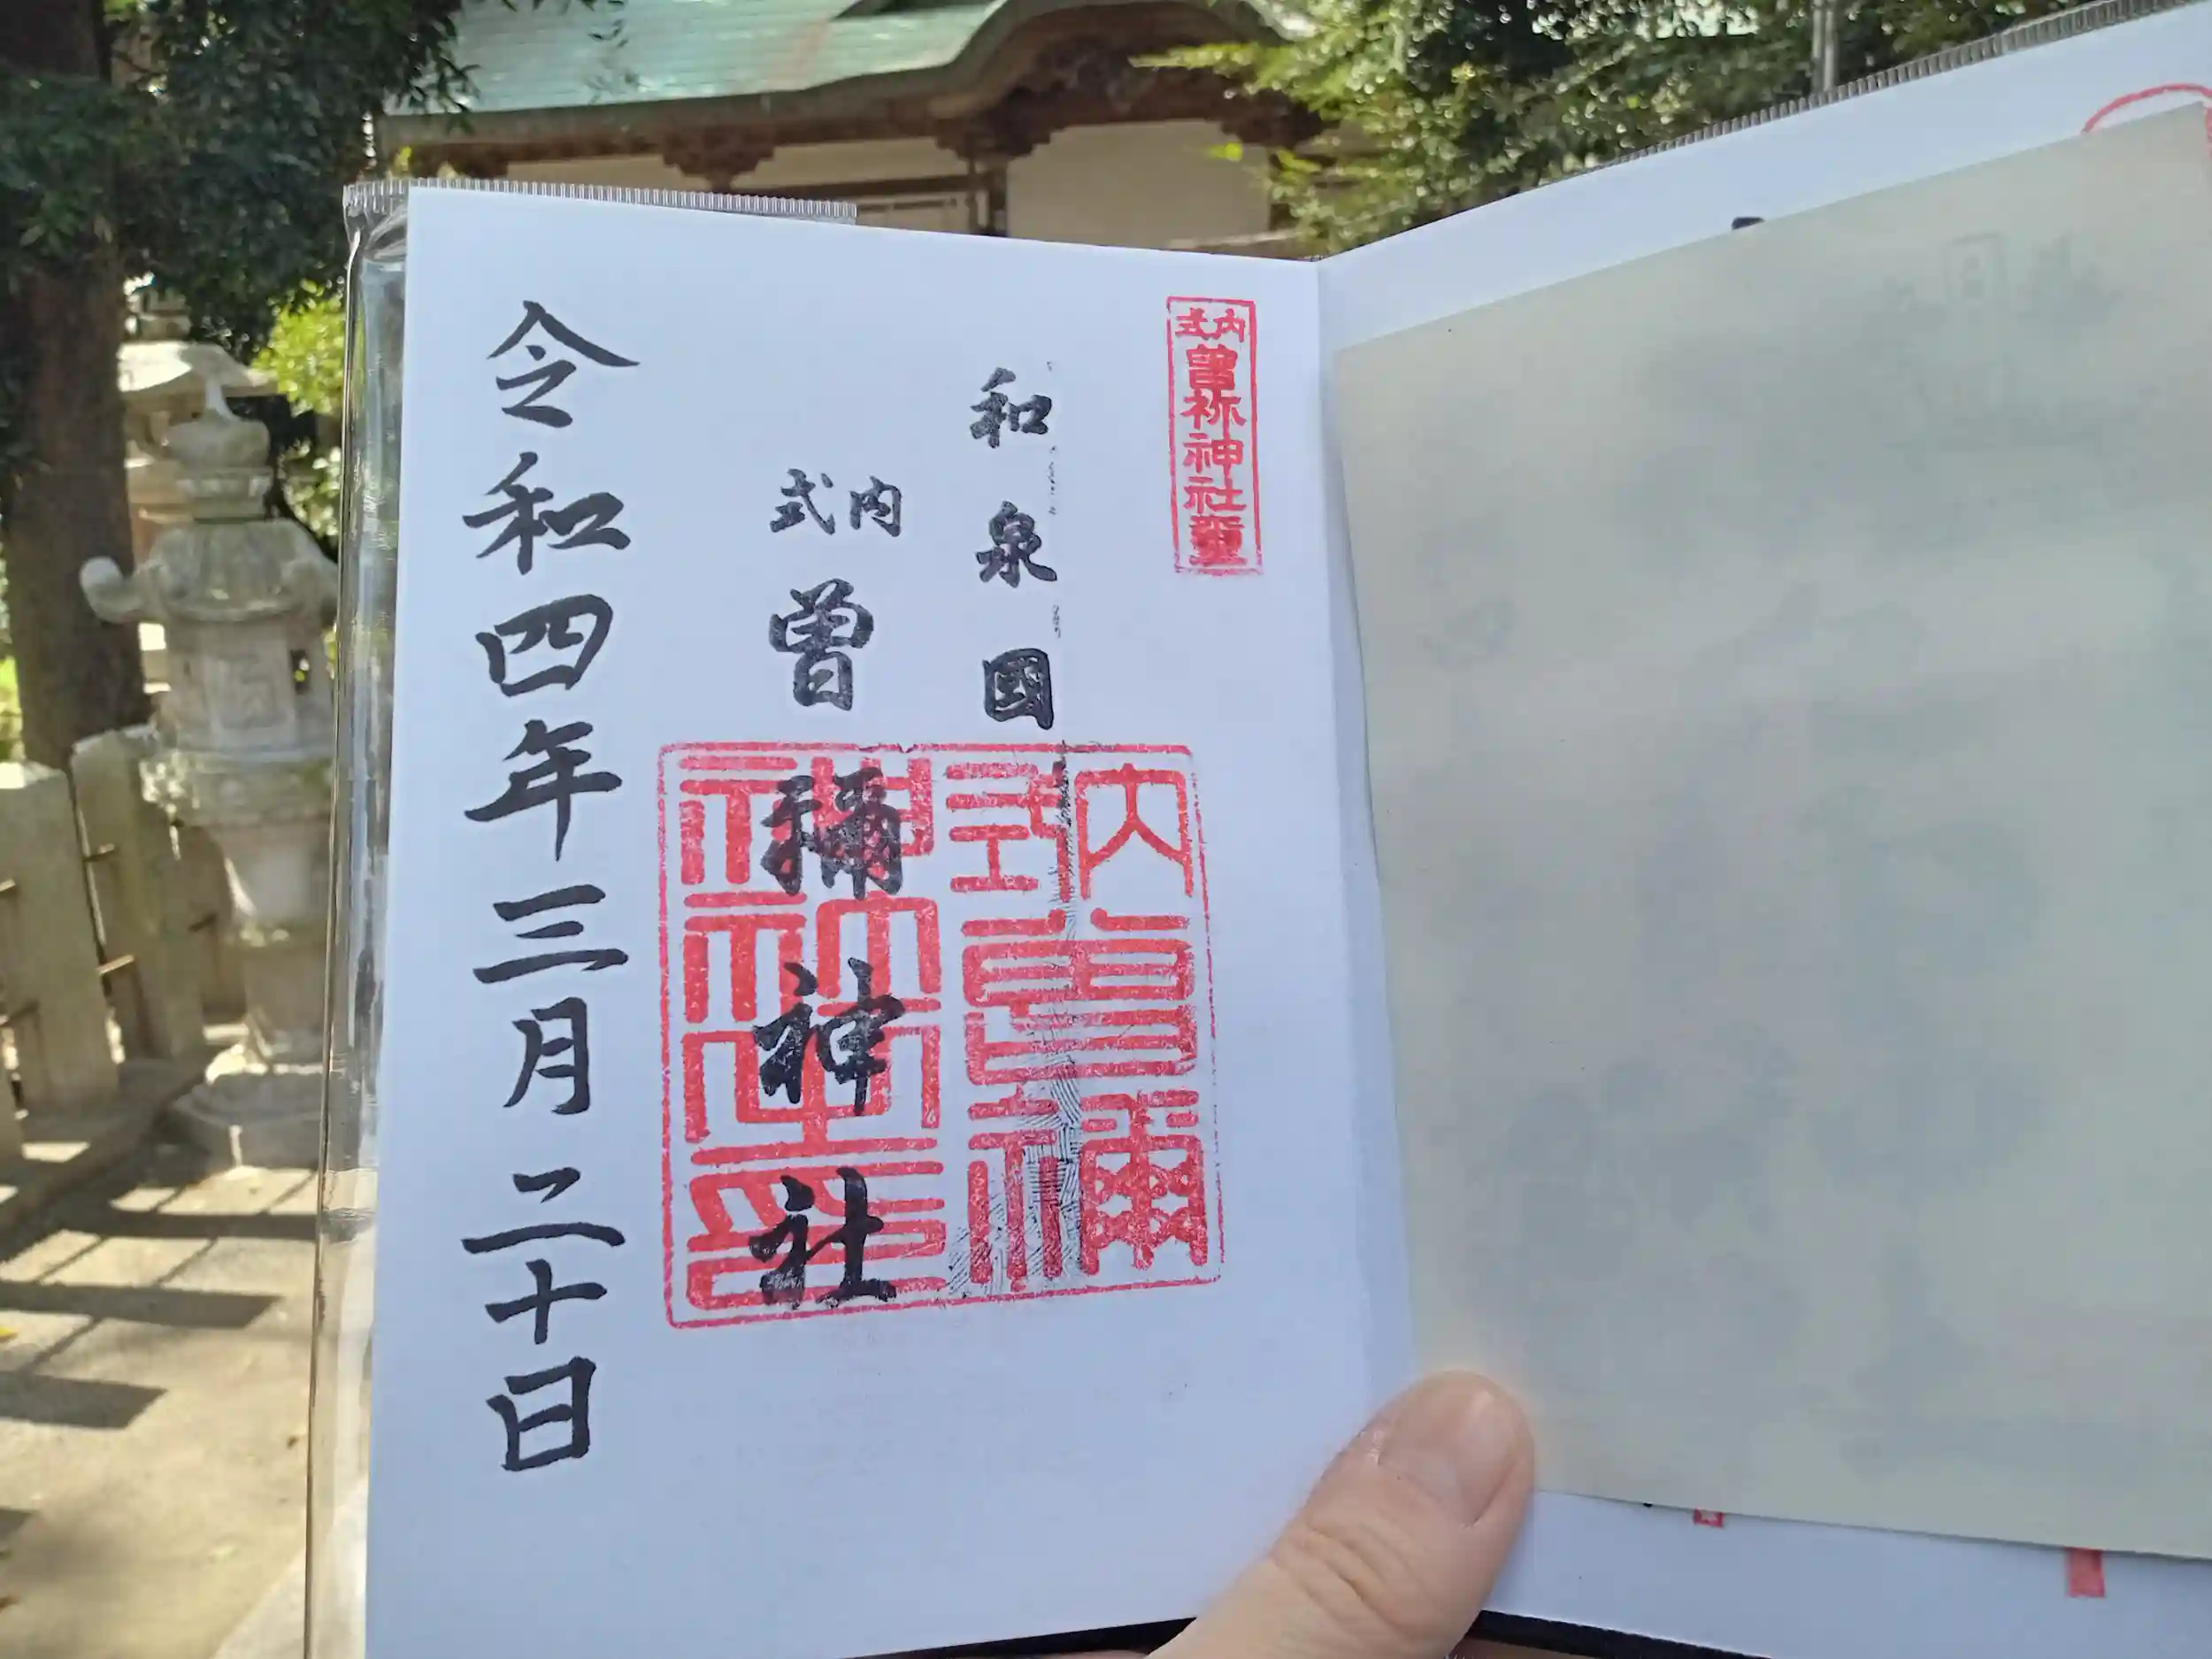 式内
曽祢神社璽
和泉國
式内
曽禰神社
式内
曽禰
神社
令和四年三月二十日